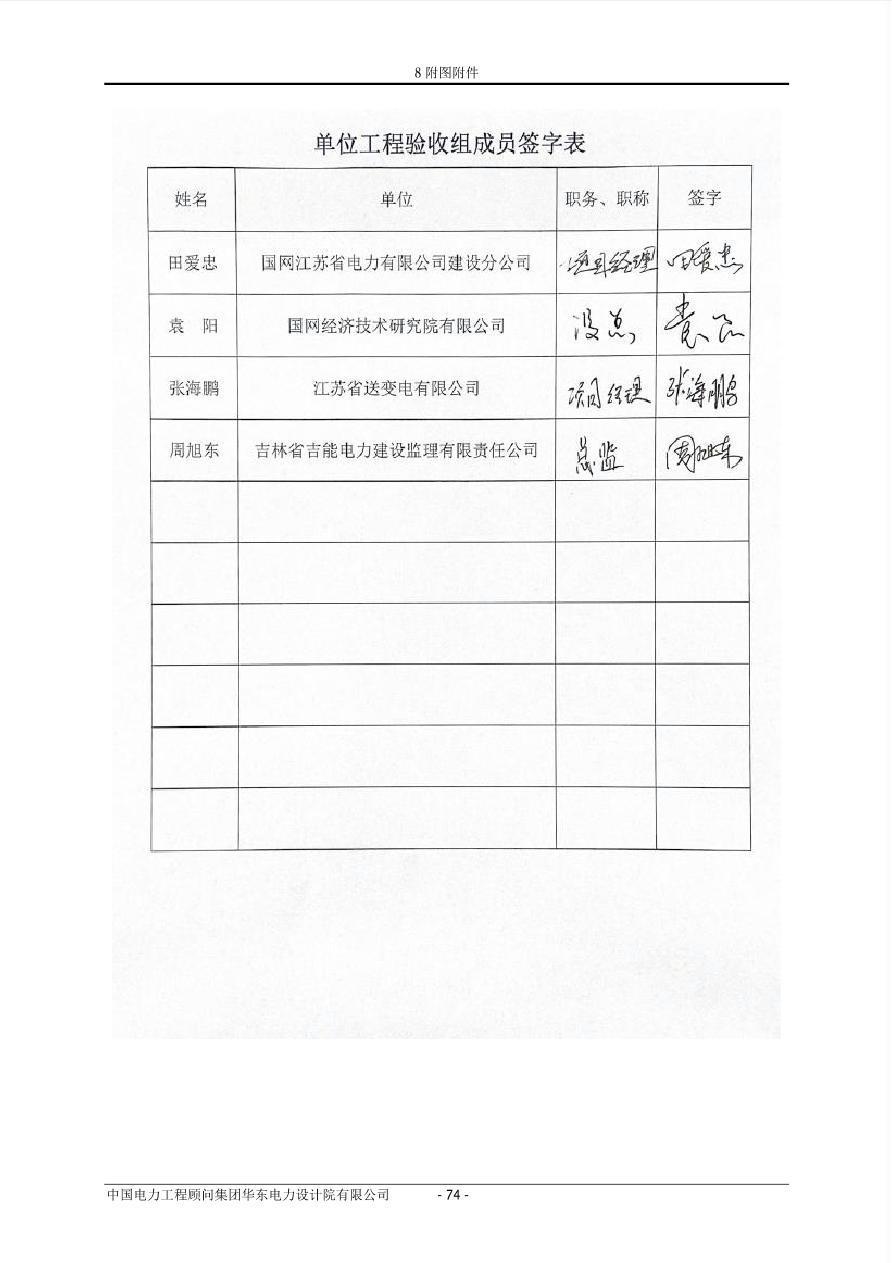 8 附图附件
单位工程验收组成员签字表
姓名 单位 职务、职称 签字
田爱忠 国网江苏省电力有限公司建设分公司 项目经理 田爱忠
袁 阳 国网经济技术研究院有限公司 设总 袁阳
张海鹏 江苏省送变电有限公司 项目经理 张海鹏
周旭东 吉林省吉能电力建设监理有限责任公司 总监 周旭东
中国电力工程顾问集团华东电力设计院有限公司 - 74 -